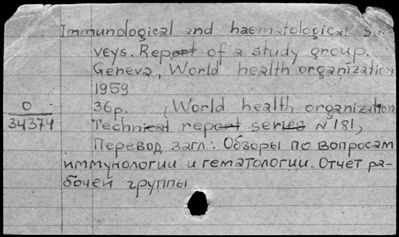 Immunological and haematological s
veys. Report of a study group.
Geneva, World health organization
1959
36p. (World health organization
Technical report series N 181)
Перевод загл.: Обзоры по вопросам
иммунологии и гематологии. Отчет ра-
бочей группы
0
34374